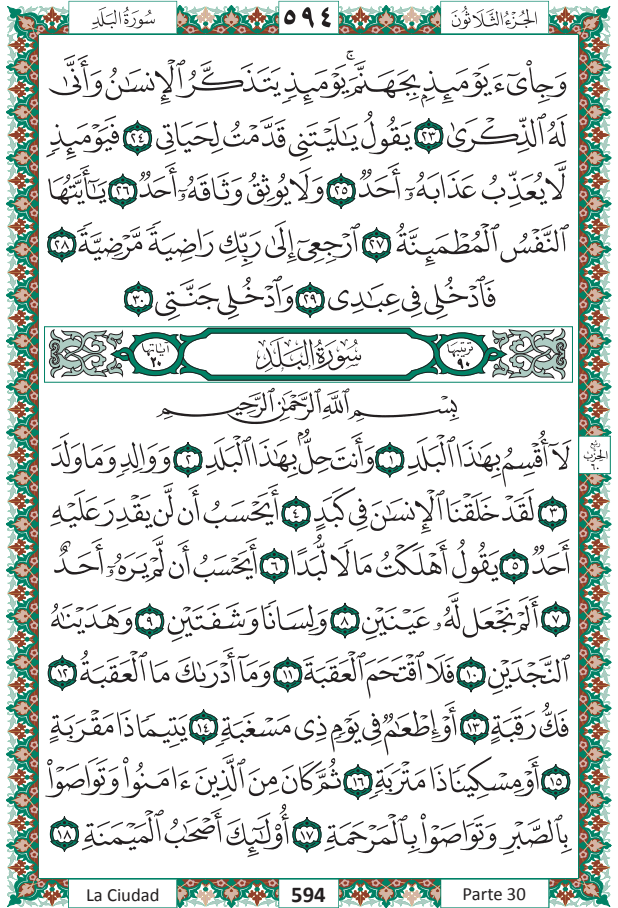 الجُزْءُ الثَّلَاثُونَ ٥٩٤ سُورَةُ البَلَدِ
وَجِاْيٓءَ يَوْمَئِذِۭ بِجَهَنَّمَۚ يَوْمَئِذٖ يَتَذَكَّرُ ٱلْإِنسَٰنُ وَأَنَّىٰ
لَهُ ٱلذِّكْرَىٰ ٢٣ يَقُولُ يَٰلَيْتَنِي قَدَّمْتُ لِحَيَاتِي ٢٤ فَيَوْمَئِذٖ
لَّا يُعَذِّبُ عَذَابَهُۥٓ أَحَدٞ ٢٥ وَلَا يُوثِقُ وَثَاقَهُۥٓ أَحَدٞ ٢٦ يَٰٓأَيَّتُهَا
ٱلنَّفْسُ ٱلْمُطْمَئِنَّةُ ٢٧ ٱرْجِعِيٓ إِلَىٰ رَبِّكِ رَاضِيَةٗ مَّرْضِيَّةٗ ٢٨
فَٱدْخُلِي فِي عِبَٰدِي ٢٩ وَٱدْخُلِي جَنَّتِي ٣٠
ترتيبها ٩٠ سُورَةُ البَلَدِ آياتها ٢٠
بِسْمِ ٱللَّهِ ٱلرَّحْمَٰنِ ٱلرَّحِيمِ
لَآ أُقْسِمُ بِهَٰذَا ٱلْبَلَدِ ١ وَأَنتَ حِلُّۢ بِهَٰذَا ٱلْبَلَدِ ٢ وَوَالِدٖ وَمَا وَلَدَ
ربع الحزب ٦٠
٣ لَقَدْ خَلَقْنَا ٱلْإِنسَٰنَ فِي كَبَدٍ ٤ أَيَحْسَبُ أَن لَّن يَقْدِرَ عَلَيْهِ
أَحَدٞ ٥ يَقُولُ أَهْلَكْتُ مَالٗا لُّبَدًا ٦ أَيَحْسَبُ أَن لَّمْ يَرَهُۥٓ أَحَدٌ
٧ أَلَمْ نَجْعَل لَّهُۥ عَيْنَيْنِ ٨ وَلِسَانٗا وَشَفَتَيْنِ ٩ وَهَدَيْنَٰهُ
ٱلنَّجْدَيْنِ ١٠ فَلَا ٱقْتَحَمَ ٱلْعَقَبَةَ ١١ وَمَآ أَدْرَىٰكَ مَا ٱلْعَقَبَةُ ١٢
فَكُّ رَقَبَةٍ ١٣ أَوْ إِطْعَٰمٞ فِي يَوْمٖ ذِي مَسْغَبَةٖ ١٤ يَتِيمٗا ذَا مَقْرَبَةٍ
١٥ أَوْ مِسْكِينٗا ذَا مَتْرَبَةٖ ١٦ ثُمَّ كَانَ مِنَ ٱلَّذِينَ ءَامَنُواْ وَتَوَاصَوْاْ
بِٱلصَّبْرِ وَتَوَاصَوْاْ بِٱلْمَرْحَمَةِ ١٧ أُوْلَٰٓئِكَ أَصْحَٰبُ ٱلْمَيْمَنَةِ ١٨
La Ciudad 594 Parte 30